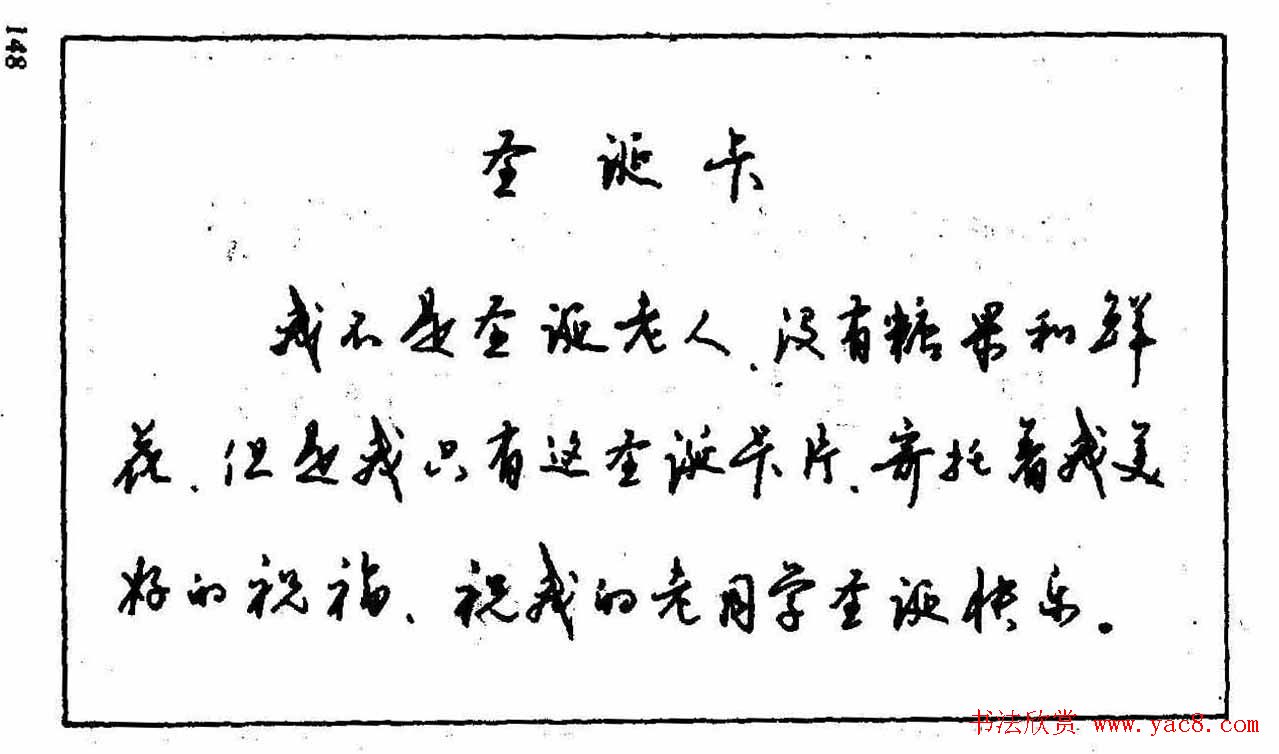 148
圣诞卡
我不是圣诞老人、没有糖果和鲜
花、但是我只有这圣诞卡片、寄托着我美
好的祝福、祝我的老同学圣诞快乐。
书法欣赏 www.yac8.com